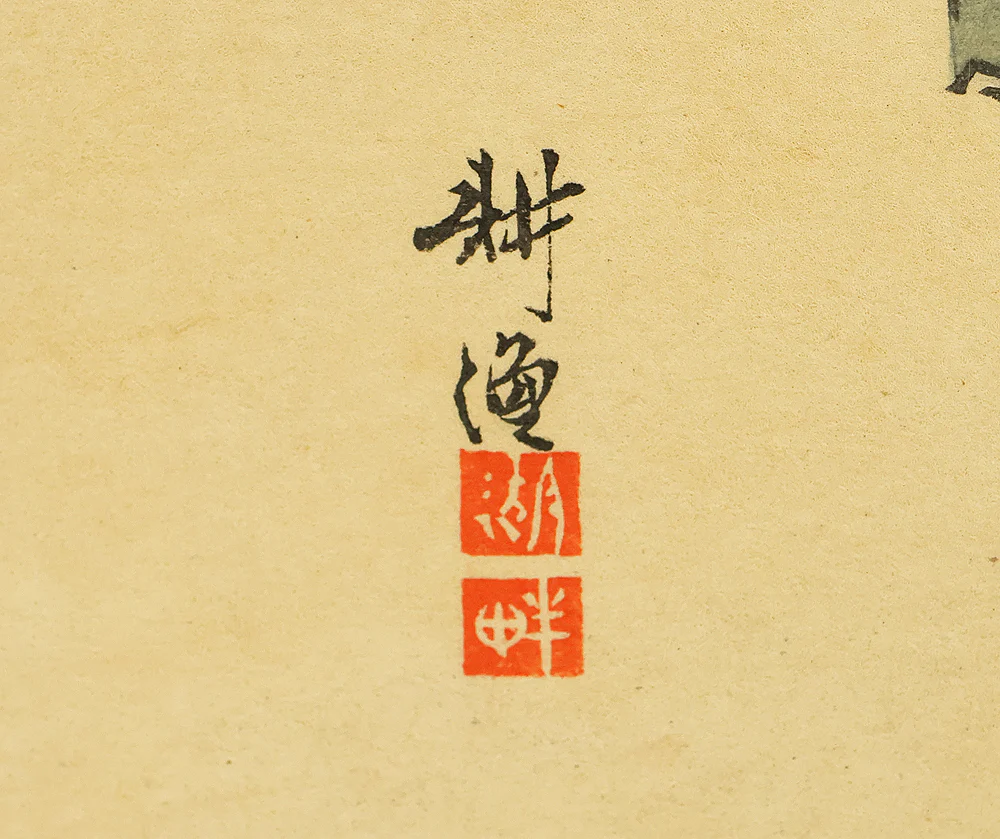 耕漁
湖
畔